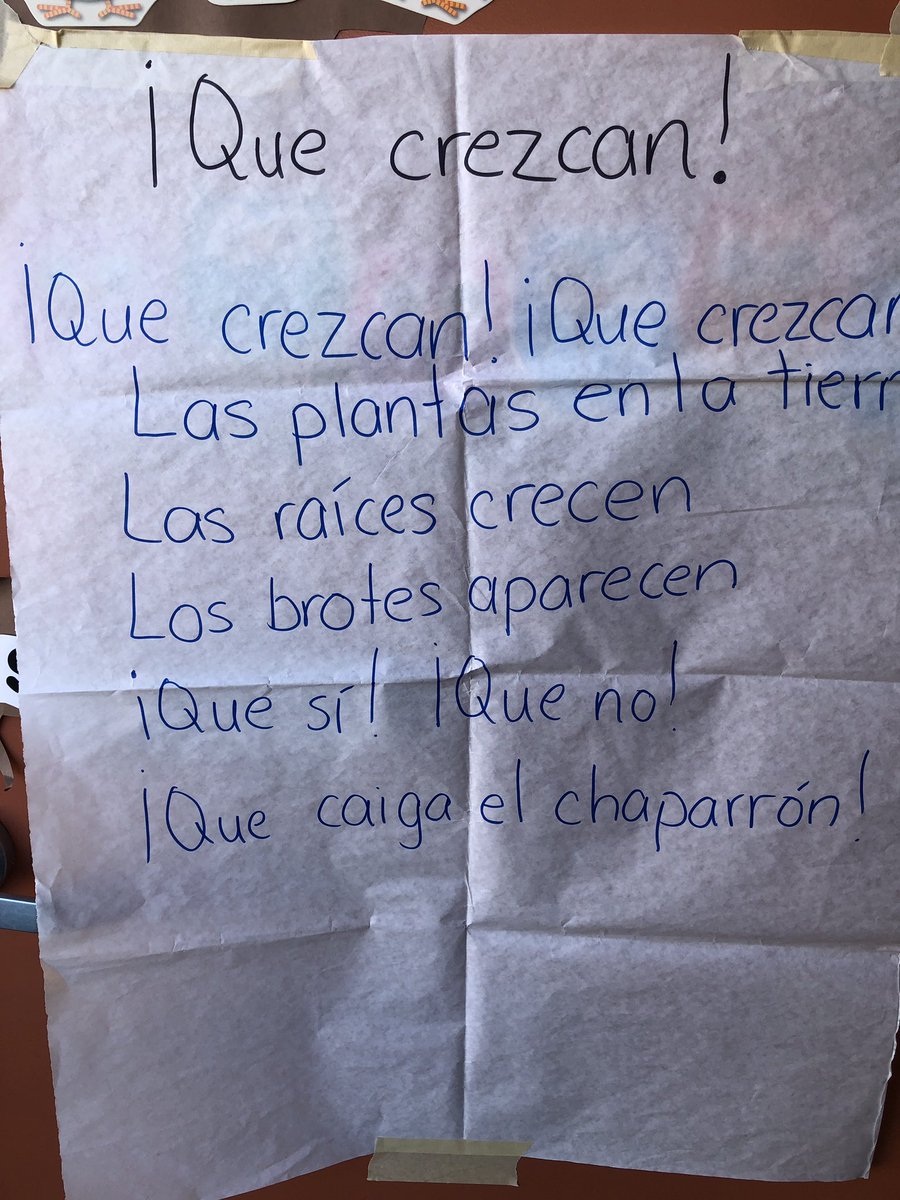 ¡Que crezcan!
¡Que crezcan! ¡Que crezcan
Las plantas en la tierr
Las raíces crecen
Los brotes aparecen
¡Que sí! ¡Que no!
¡Que caiga el chaparrón!